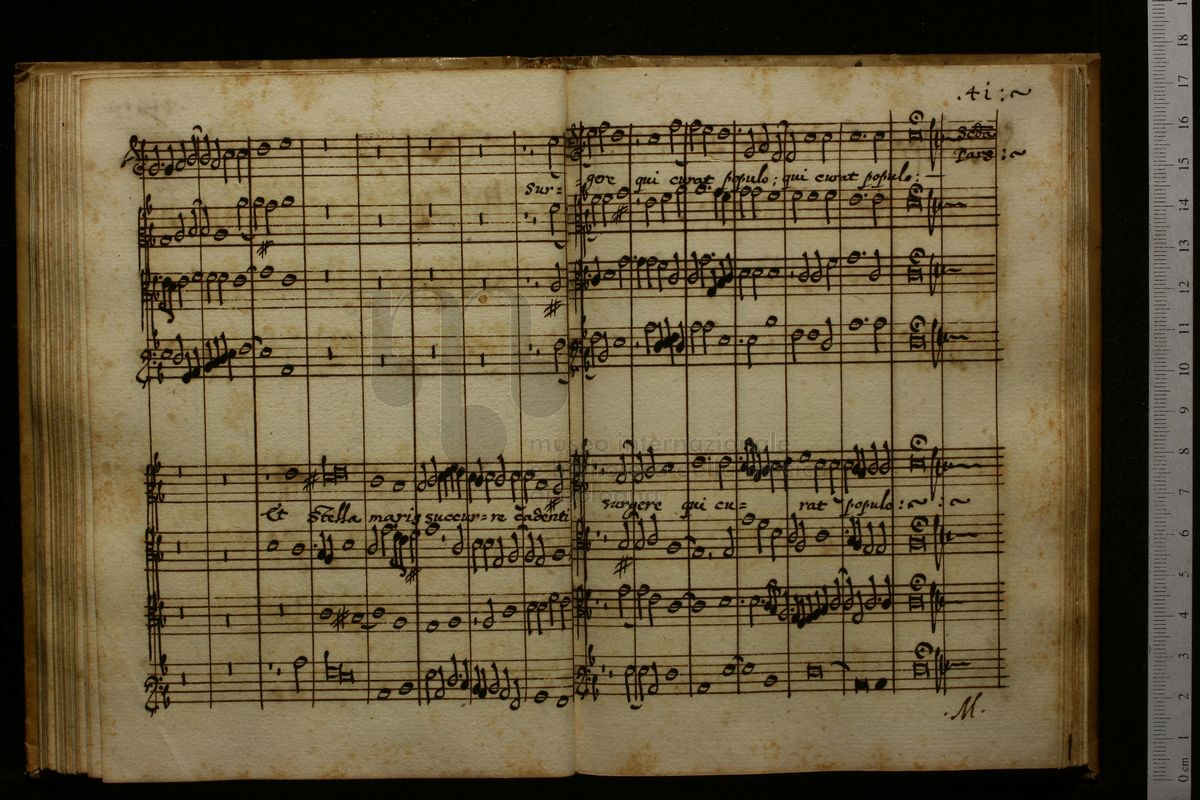 .41:~
Secda
Pars:~
Sur= gere qui curat populo; qui curat populo:
museo internazionale
Et Stella maris succur=re cadenti surgere qui cu= rat populo:~ :~
.M.
18
17
16
15
14
13
12
11
10
9
8
7
6
5
4
3
2
1
0 cm